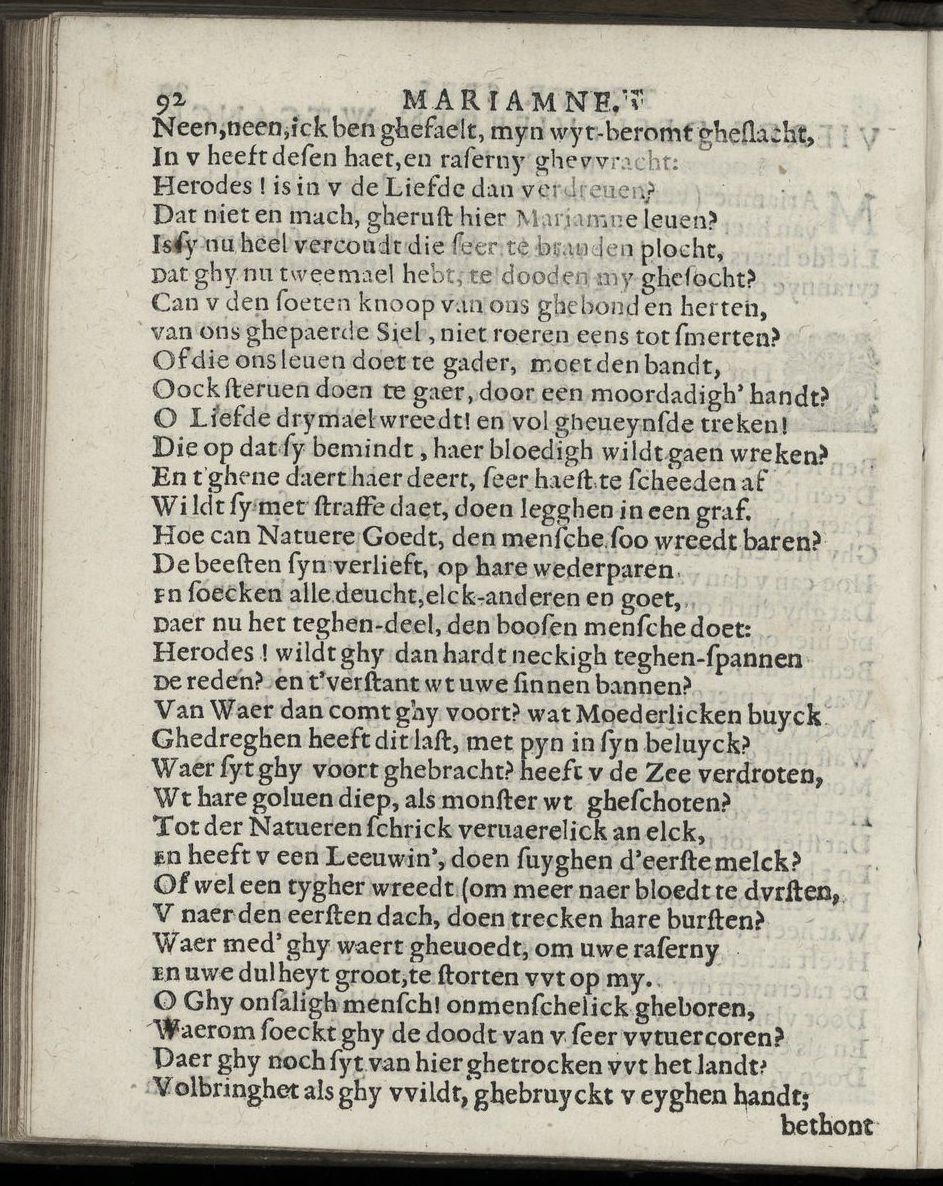 92 MARIAMNE.
Neen,neen,ick ben ghefaelt, myn wyt-beromt gheſlacht,
In v heeft deſen haet,en raſerny ghevvracht:
Herodes ! is in v de Liefde dan verdreuen?
Dat niet en mach, gheruſt hier Mariamne leuen?
Is ſy nu heel vercoudt die ſeer te branden plocht,
Dat ghy nu tweemael hebt, te dooden my gheſocht?
Can v den ſoeten knoop van ons ghebonden herten,
van ons ghepaerde Siel , niet roeren eens tot ſmerten?
Of die ons leuen doet te gader, moet den bandt,
Oock ſteruen doen te gaer, door een moordadigh' handt?
O Liefde drymael wreedt! en vol gheueynſde treken!
Die op dat ſy bemindt , haer bloedigh wildt gaen wreken?
En t'ghene daert haer deert, ſeer haeſt te ſcheeden af
Wildt ſy met ſtraffe daet, doen legghen in een graf.
Hoe can Natuere Goedt, den menſche ſoo wreedt baren?
De beeſten ſyn verlieft, op hare wederparen
En ſoecken alle deucht,elck-anderen en goet,
Daer nu het teghen-deel, den booſen menſche doet:
Herodes ! wildt ghy dan hardtneckigh teghen-ſpannen
De reden? en t'verſtant wt uwe ſinnen bannen?
Van Waer dan comt ghy voort? wat Moederlicken buyck
Ghedreghen heeft dit laſt, met pyn in ſyn beluyck?
Waer ſyt ghy voort ghebracht? heeft v de Zee verdroten,
Wt hare goluen diep, als monſter wt gheſchoten?
Tot der Natueren ſchrick veruaerelick an elck,
En heeft v een Leeuwin', doen ſuyghen d'eerſte melck?
Of wel een tygher wreedt (om meer naer bloedt te dvrſten,
V naer den eerſten dach, doen trecken hare burſten?
Waer med' ghy waert gheuoedt, om uwe raſerny
En uwe dulheyt groot,te ſtorten vvt op my.
O Ghy onſaligh menſch! onmenſchelick gheboren,
Waerom ſoeckt ghy de doodt van v ſeer vvtuercoren?
Daer ghy noch ſyt van hier ghetrocken vvt het landt?
Volbringhet als ghy vvildt, ghebruyckt v eyghen handt;
bethont